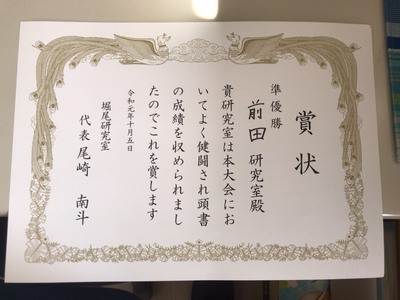 賞状
準優勝
前田 研究室殿
貴研究室は本大会にお
いてよく健闘され頭書
の成績を収められまし
たのでこれを賞します
令和元年十月五日
堀尾研究室
代表 尾崎 南斗